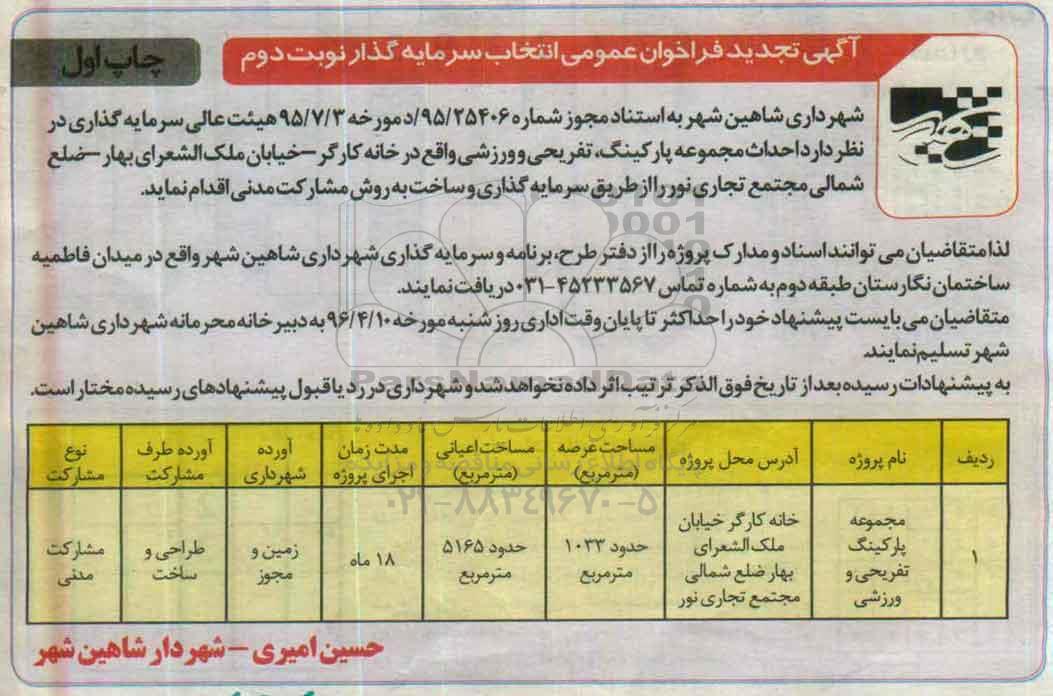 آگهی تجدید فراخوان عمومی انتخاب سرمایه گذار نوبت دوم
چاپ اول
شهرداری شاهین شهر به استناد مجوز شماره ۹۵/۲۵۴۰۶/د مورخه ۹۵/۷/۳ هیئت عالی سرمایه گذاری در
نظر دارد احداث مجموعه پارکینگ، تفریحی و ورزشی واقع در خانه کارگر – خیابان ملک الشعرای بهار – ضلع
شمالی مجتمع تجاری نور را از طریق سرمایه گذاری و ساخت به روش مشارکت مدنی اقدام نماید.
لذا متقاضیان می توانند اسناد و مدارک پروژه را از دفتر طرح، برنامه و سرمایه گذاری شهرداری شاهین شهر واقع در میدان فاطمیه
ساختمان نگارستان طبقه دوم به شماره تماس ۴۵۲۳۳۵۶۷-۰۳۱ دریافت نمایند.
متقاضیان می بایست پیشنهاد خود را حداکثر تا پایان وقت اداری روز شنبه مورخه ۹۶/۴/۱۰ به دبیرخانه محرمانه شهرداری شاهین
شهر تسلیم نمایند.
به پیشنهادات رسیده بعد از تاریخ فوق الذکر ترتیب اثر داده نخواهد شد و شهرداری در رد یا قبول پیشنهادهای رسیده مختار است.
ParsNamadData
ردیف | نام پروژه | آدرس محل پروژه | مساحت عرصه (مترمربع) | مساخت اعیانی (مترمربع) | مدت زمان اجرای پروژه | آورده شهرداری | آورده طرف مشارکت | نوع مشارکت
۰۲۱-۸۸۳۴۹۶۷۰-۵
۱ | مجموعه پارکینگ تفریحی و ورزشی | خانه کارگر خیابان ملک الشعرای بهار ضلع شمالی مجتمع تجاری نور | حدود ۱۰۳۳ مترمربع | حدود ۵۱۶۵ مترمربع | ۱۸ ماه | زمین و مجوز | طراحی و ساخت | مشارکت مدنی
حسین امیری – شهردار شاهین شهر